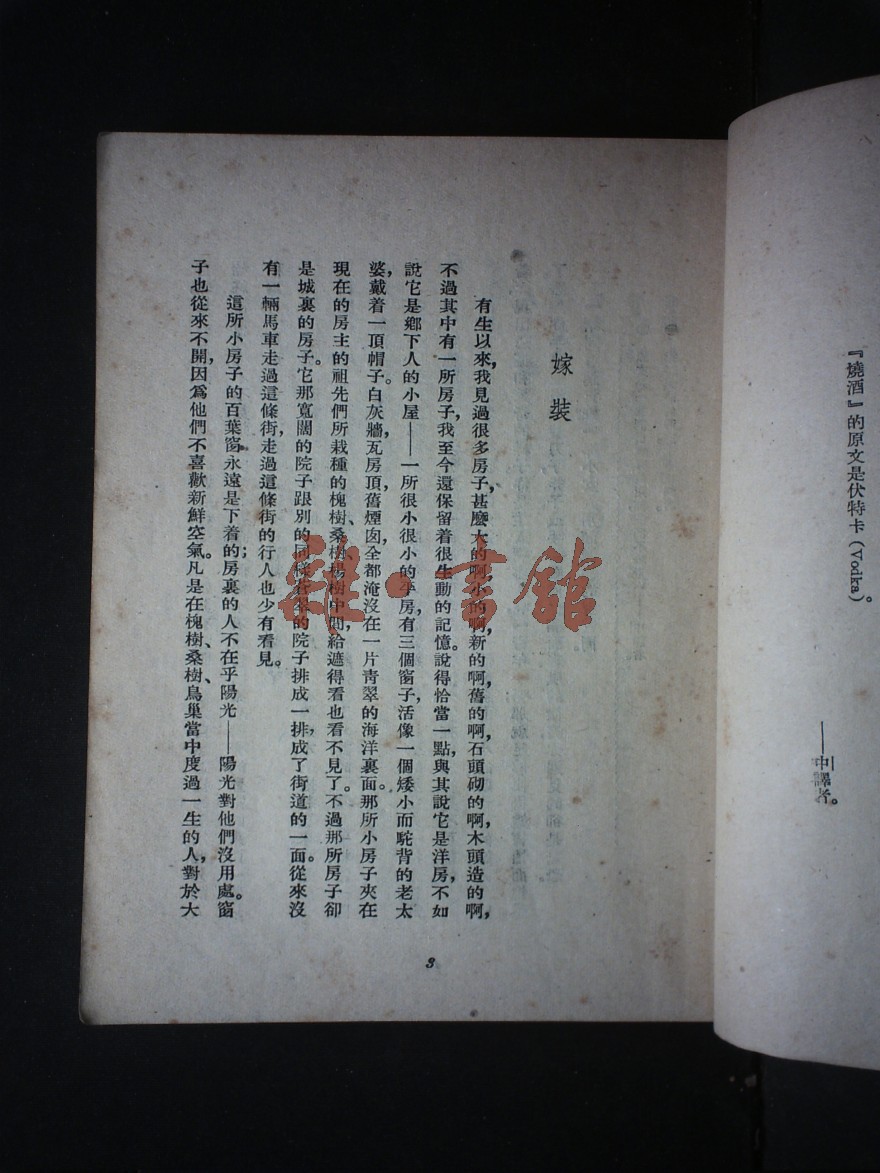 『燒酒』的原文是伏特卡(Vodka)。
——中譯者。
嫁裝
有生以來,我見過很多房子,甚麼大的啊,小的啊,新的啊,舊的啊,石頭砌的啊,木頭造的啊,
不過其中有一所房子,我至今還保留着很生動的記憶。說得恰當一點,與其說它是洋房,不如
說它是鄉下人的小屋——一所很小很小的平房,有三個窗子,活像一個矮小而駝背的老太
婆,戴着一頂帽子。白灰牆,瓦房頂,舊煙囪,全都淹沒在一片青翠的海洋裏面。那所小房子夾在
現在的房主的祖先們所栽種的槐樹、桑樹、楊樹中間,給遮得看也看不見了。不過那所房子卻
是城裏的房子。它那寬闊的院子跟別的同樣蒼翠的院子排成一排,成了街道的一面。從來沒
有一輛馬車走過這條街,走過這條街的行人也少有看見。
這所小房子的百葉窗,永遠是下着的;房裏的人不在乎陽光——陽光對他們沒用處。窗
子也從來不開,因爲他們不喜歡新鮮空氣。凡是在槐樹、桑樹、鳥巢當中度過一生的人,對於大
3
雜·書館